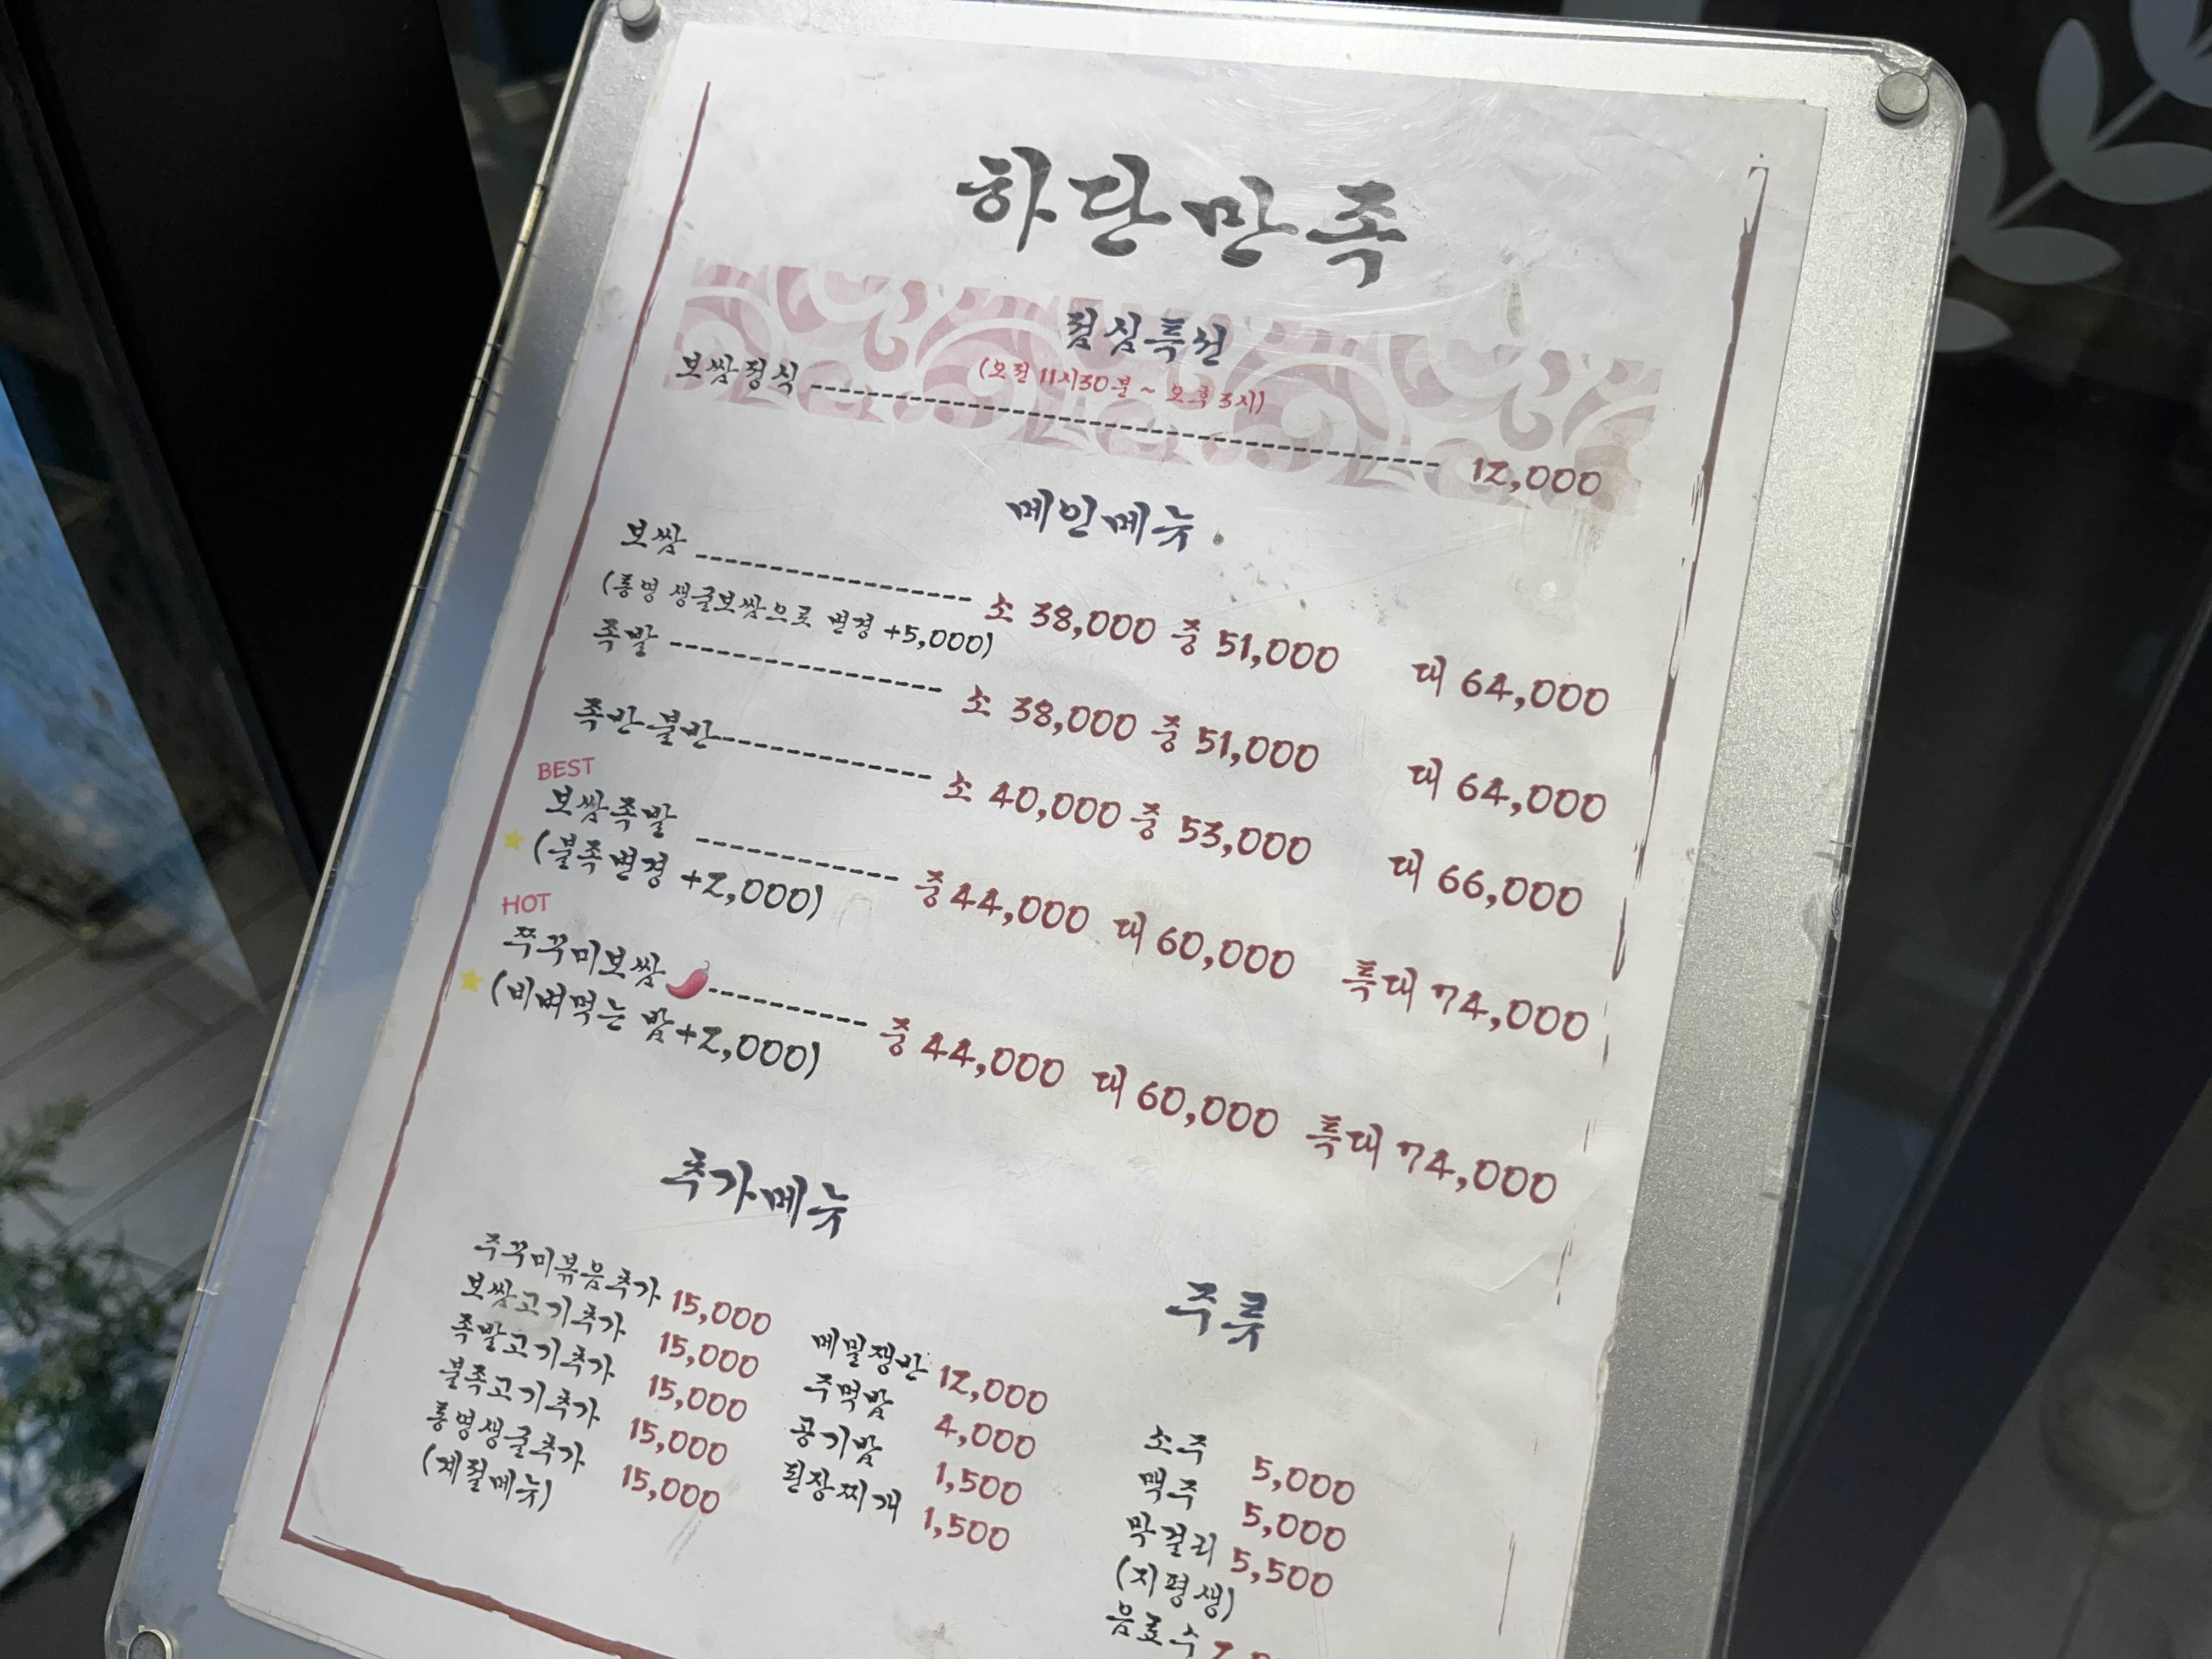 하단만족
점심특선
(오전 11시30분 ~ 오후 3시)
보쌈정식 ------------------------ 12,000
메인메뉴
보쌈 ---------------- 소 38,000 중 51,000 대 64,000
(통영 생굴보쌈으로 변경 +5,000)
족발 ---------------- 소 38,000 중 51,000 대 64,000
족반 불반 ------------ 소 40,000 중 53,000 대 66,000
BEST
보쌈족발 ------------ 중 44,000 대 60,000 특대 74,000
(불족변경 +2,000)
HOT
쭈꾸미보쌈 ---------- 중 44,000 대 60,000 특대 74,000
(비벼먹는 밥+2,000)
추가메뉴
주꾸미볶음추가 15,000
보쌈고기추가 15,000
족발고기추가 15,000
불족고기추가 15,000
통영생굴추가 15,000
(계절메뉴)
메밀쟁반 12,000
주먹밥 4,000
공기밥 1,500
된장찌개 1,500
주류
소주 5,000
맥주 5,000
막걸리 5,500
(지평생)
음료수